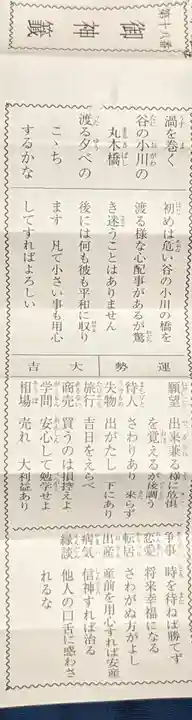 第十八番
御神籤
渦を巻く
谷の小川の
丸木橋
渡る夕べの
こゝち
するかな
初めは危い谷の小川の橋を
渡る様な心配事があるが驚
き迷うことはありません
後には何も彼も平和に収り
ます 凡て小さい事も用心
してすればよろしい
運勢大吉
願望 出来兼る様に危惧
を覚えるが後調う
待人 さわりあり 来らず
失物 出がたし 下にあり
旅行 吉日をえらべ
商売 買うのは損控えよ
学問 安心して勉学せよ
相場 売れ 大利益あり
争事 時を待ねば勝てず
恋愛 将来幸福になる
転居 さわがぬ方がよし
出産 産前を用心すれば安産
病気 信神すれば治る
縁談 他人の口舌に惑わさ
れるな